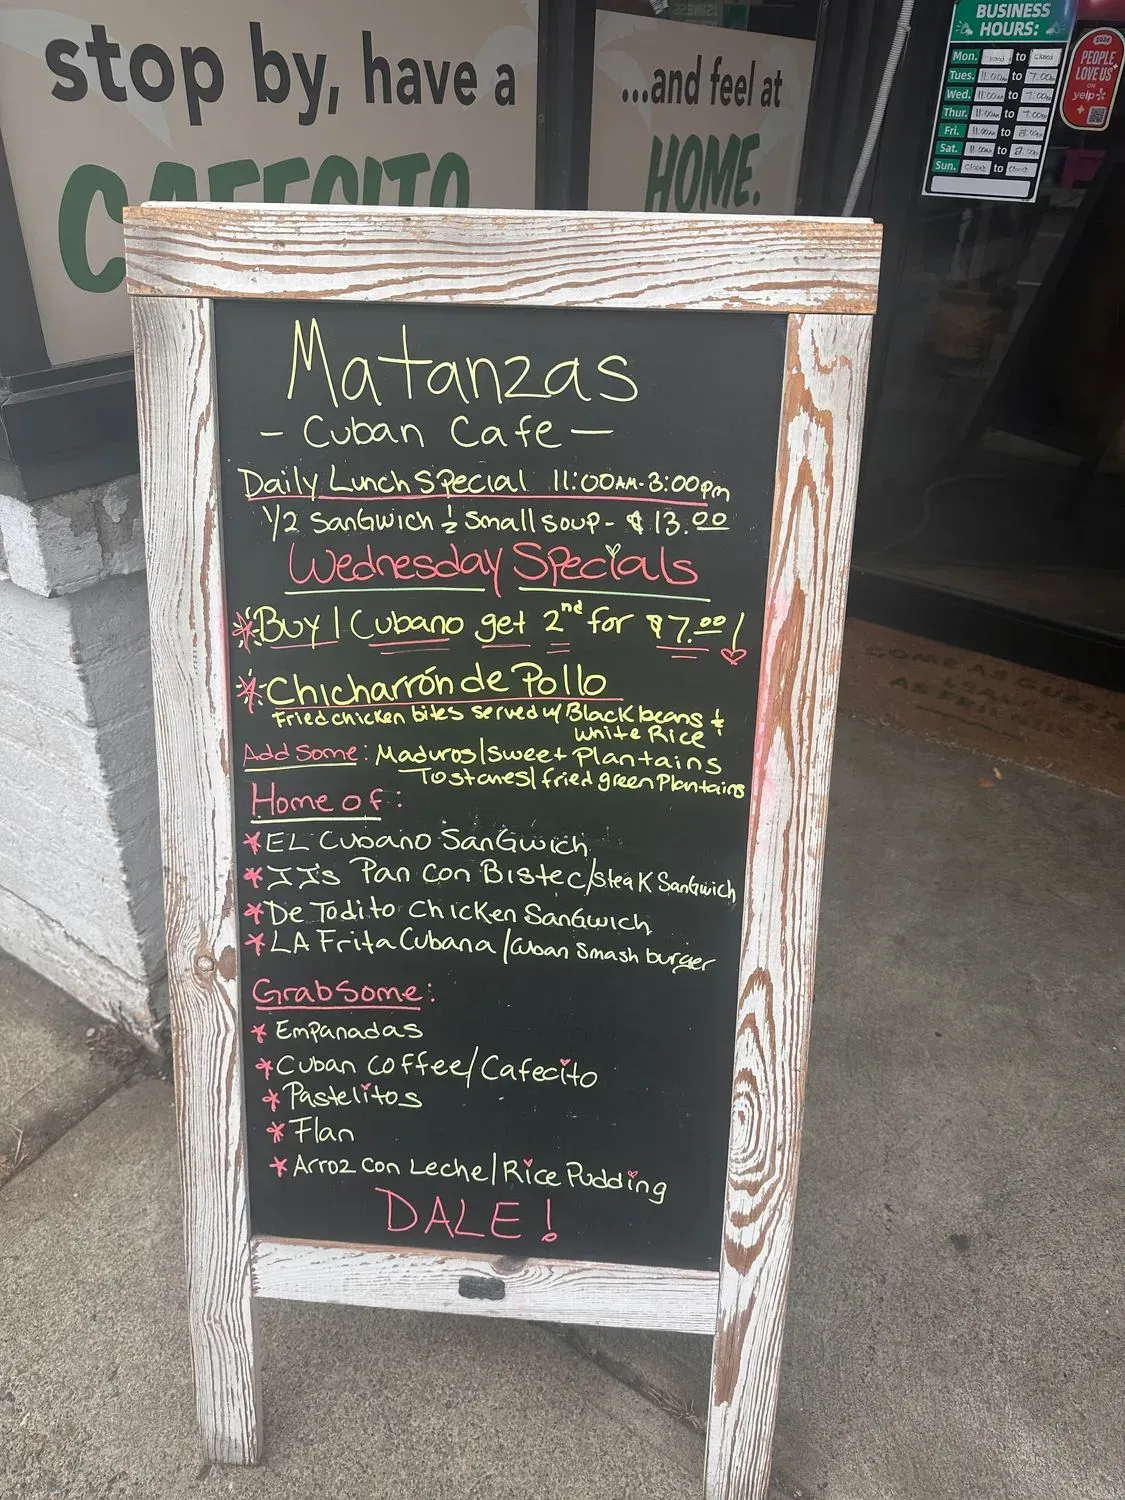 stop by, have a
CAFECITO
...and feel at
HOME.
BUSINESS
HOURS:
Mon. Closed to Closed
Tues. 11:00am to 7:00pm
Wed. 11:00am to 7:00pm
Thur. 11:00am to 7:00pm
Fri. 11:00am to 8:00pm
Sat. 11:00am to 8:00pm
Sun. Closed to Closed
2024
PEOPLE
LOVE US
ON
yelp
Matanzas
- Cuban Cafe -
Daily Lunch Special 11:00AM-3:00pm
1/2 SanGwich & Small soup - $13.00
Wednesday Specials
Buy 1 Cubano get 2nd for $7.00!
Chicharrón de Pollo
Fried chicken bites served w/ Black beans &
White Rice
Add Some: Maduros/sweet Plantains
Tostones/fried green Plantains
Home of:
* EL Cubano SanGwich
* JJ's Pan Con Bistec/Steak SanGwich
* De Todito Chicken SanGwich
* LA Frita Cubana/Cuban Smash burger
Grab Some:
* Empanadas
* Cuban Coffee/Cafecito
* Pastelitos
* Flan
* Arroz Con Leche/Rice Pudding
DALE!